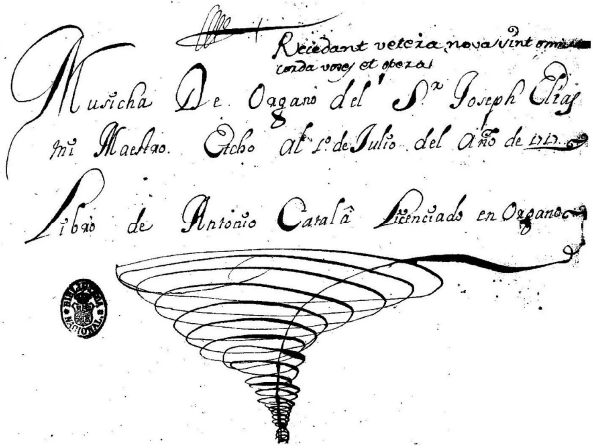 Recedant vetera, nova sint omnia
corda voces et opera
Musicha De Organo del S.r Joseph Elias
mi Maestro. Etcho al 1º de Julio del Año de 1717
Libro de Antonio Catalâ Licenciado en Organo
BIBLIOTECA NACIONAL